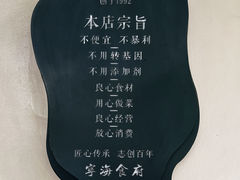 创于1992
本店宗旨
不便宜 不暴利
不用转基因
不用添加剂
良心食材
用心做菜
良心经营
放心消费
匠心传承 志创百年
宁海食府